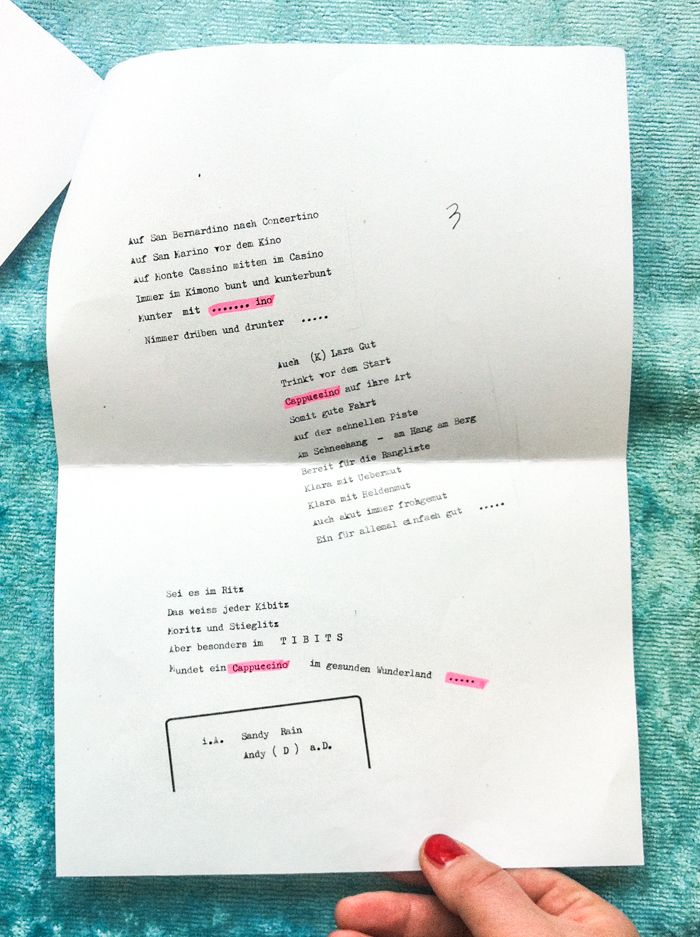 3
Auf San Bernardino nach Concertino
Auf San Marino vor dem Kino
Auf Monte Cassino mitten im Casino
Immer im Kimono bunt und kunterbunt
Munter mit ....... ino
Nimmer drüben und drunter .....
Auch (K) Lara Gut
Trinkt vor dem Start
Cappuccino auf ihre Art
Somit gute Fahrt
Auf der schnellen Piste
Am Schneehang - am Hang am Berg
Bereit für die Rangliste
Klara mit Uebermut
Klara mit Heldenmut
Auch akut immer frohgemut
Ein für allemal einfach gut .....
Sei es im Ritz
Das weiss jeder Kibitz
Moritz und Stieglitz
Aber besonders im T I B I T S
Mundet ein Cappuccino im gesunden Wunderland .....
i.A. Sandy Rain
Andy ( D ) a.D.